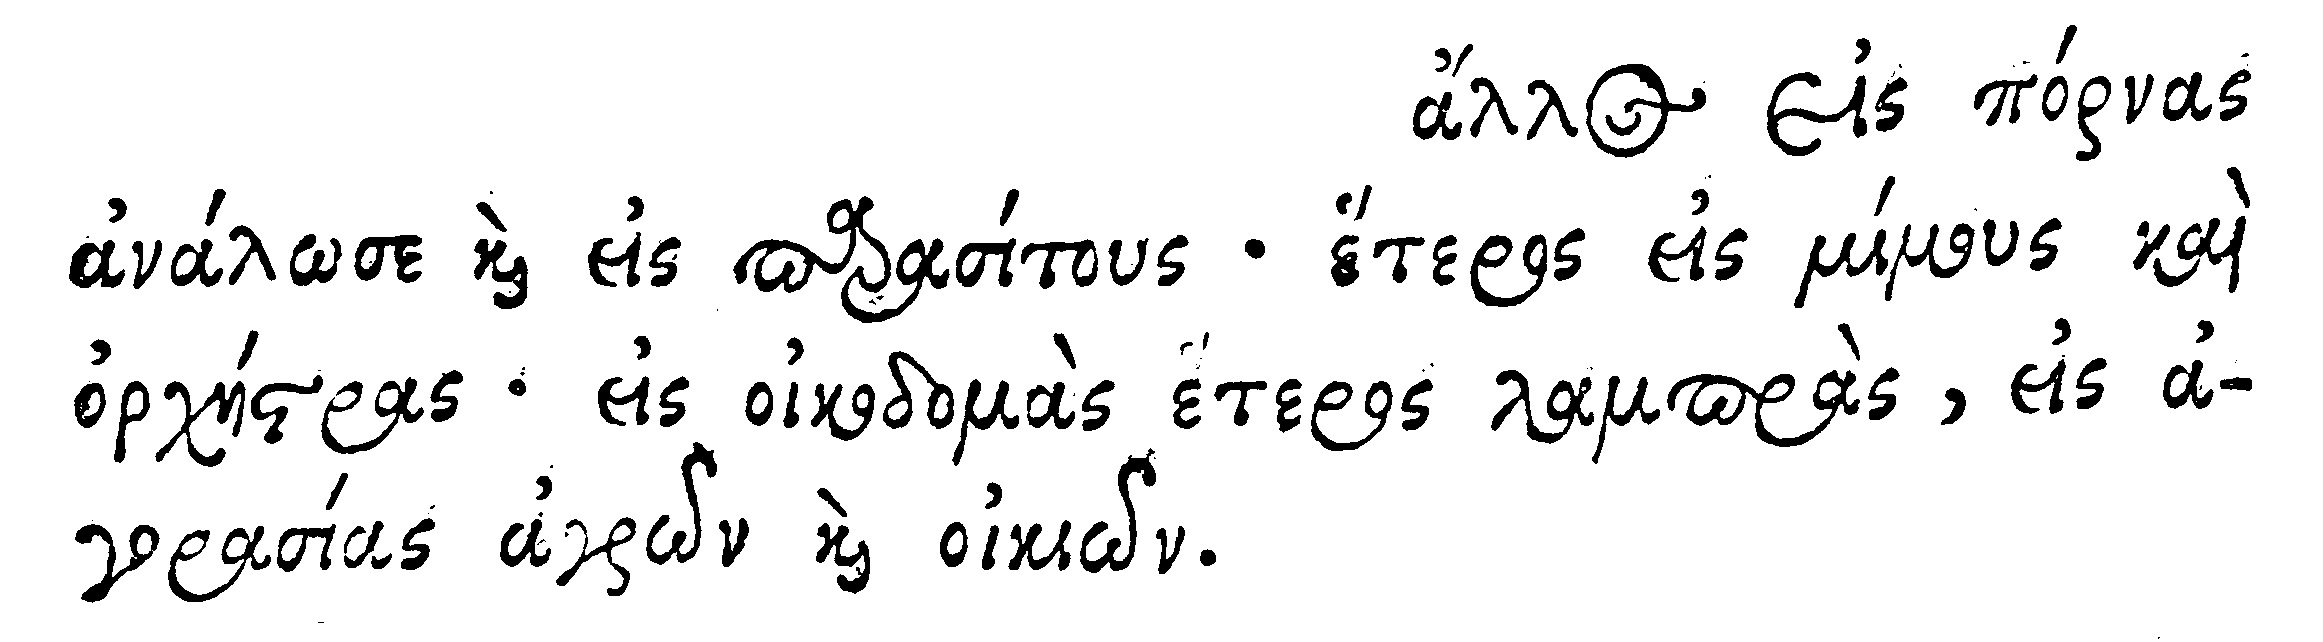 ἄλλος εἰς πόρνας
ἀνάλωσε καὶ εἰς παρασίτους · ἕτερος εἰς μίμους καὶ
ὀρχήστρας · εἰς οἰκοδομὰς ἕτερος λαμπρὰς, εἰς ἀ-
γορασίας ἀγρῶν καὶ οἰκιῶν.